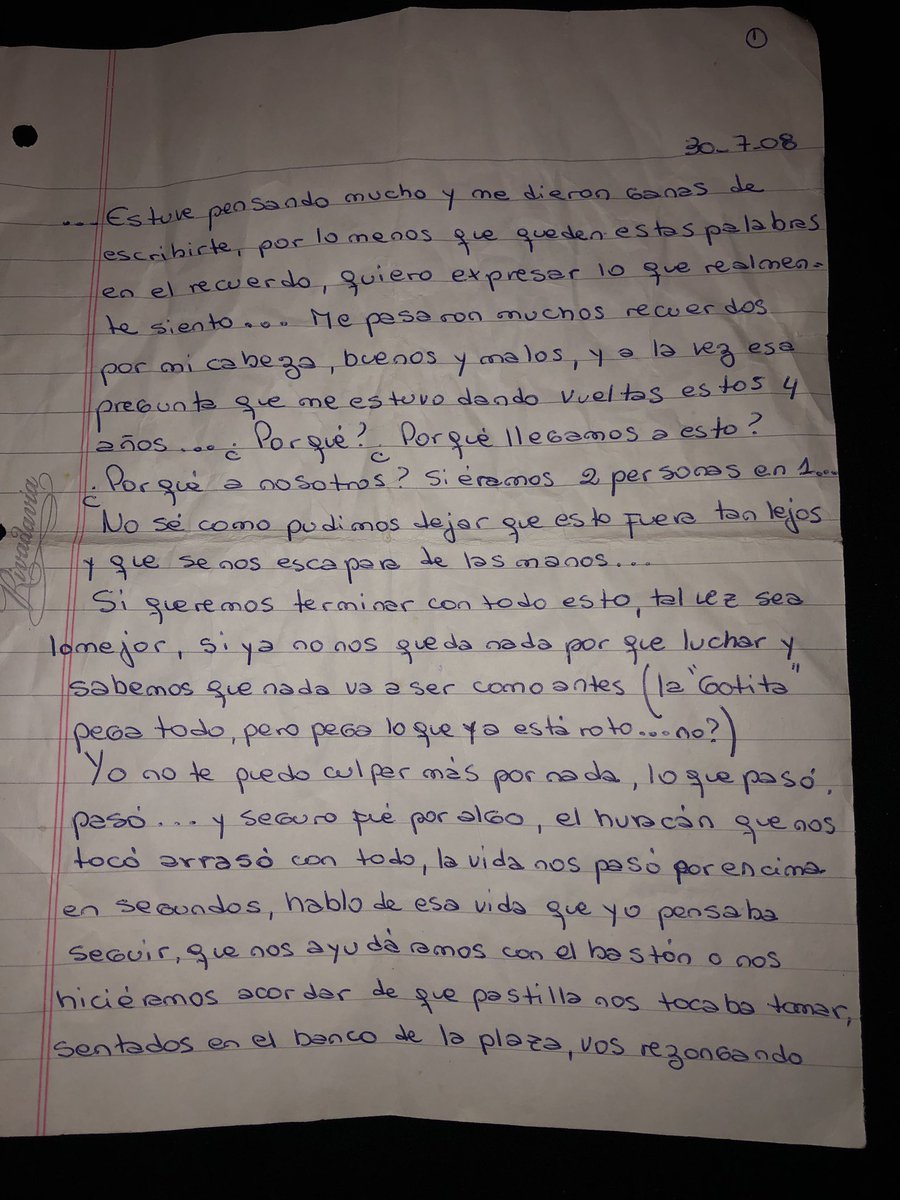 1
30-7-08
... Estuve pensando mucho y me dieron ganas de
escribirte, por lo menos que queden estas palabras
en el recuerdo, quiero expresar lo que realmen-
te siento... Me pasaron muchos recuerdos
por mi cabeza, buenos y malos, y a la vez esa
pregunta que me estuvo dando vueltas estos 4
años... ¿Porqué? ¿Porqué llegamos a esto?
¿Porqué a nosotros? Si éramos 2 personas en 1...
No sé como pudimos dejar que esto fuera tan lejos
y que se nos escapara de las manos...
Si queremos terminar con todo esto, tal vez sea
lo mejor, si ya no nos queda nada por que luchar y
sabemos que nada va a ser como antes (la "Gotita"
pega todo, pero pega lo que ya está roto...no?)
Yo no te puedo culpar más por nada, lo que pasó,
pasó... y seguro fué por algo, el huracán que nos
tocó arrasó con todo, la vida nos pasó por encima
en segundos, hablo de esa vida que yo pensaba
seguir, que nos ayudáramos con el bastón o nos
hiciéramos acordar de que pastilla nos tocaba tomar,
sentados en el banco de la plaza, vos rezongando
Rivadavia